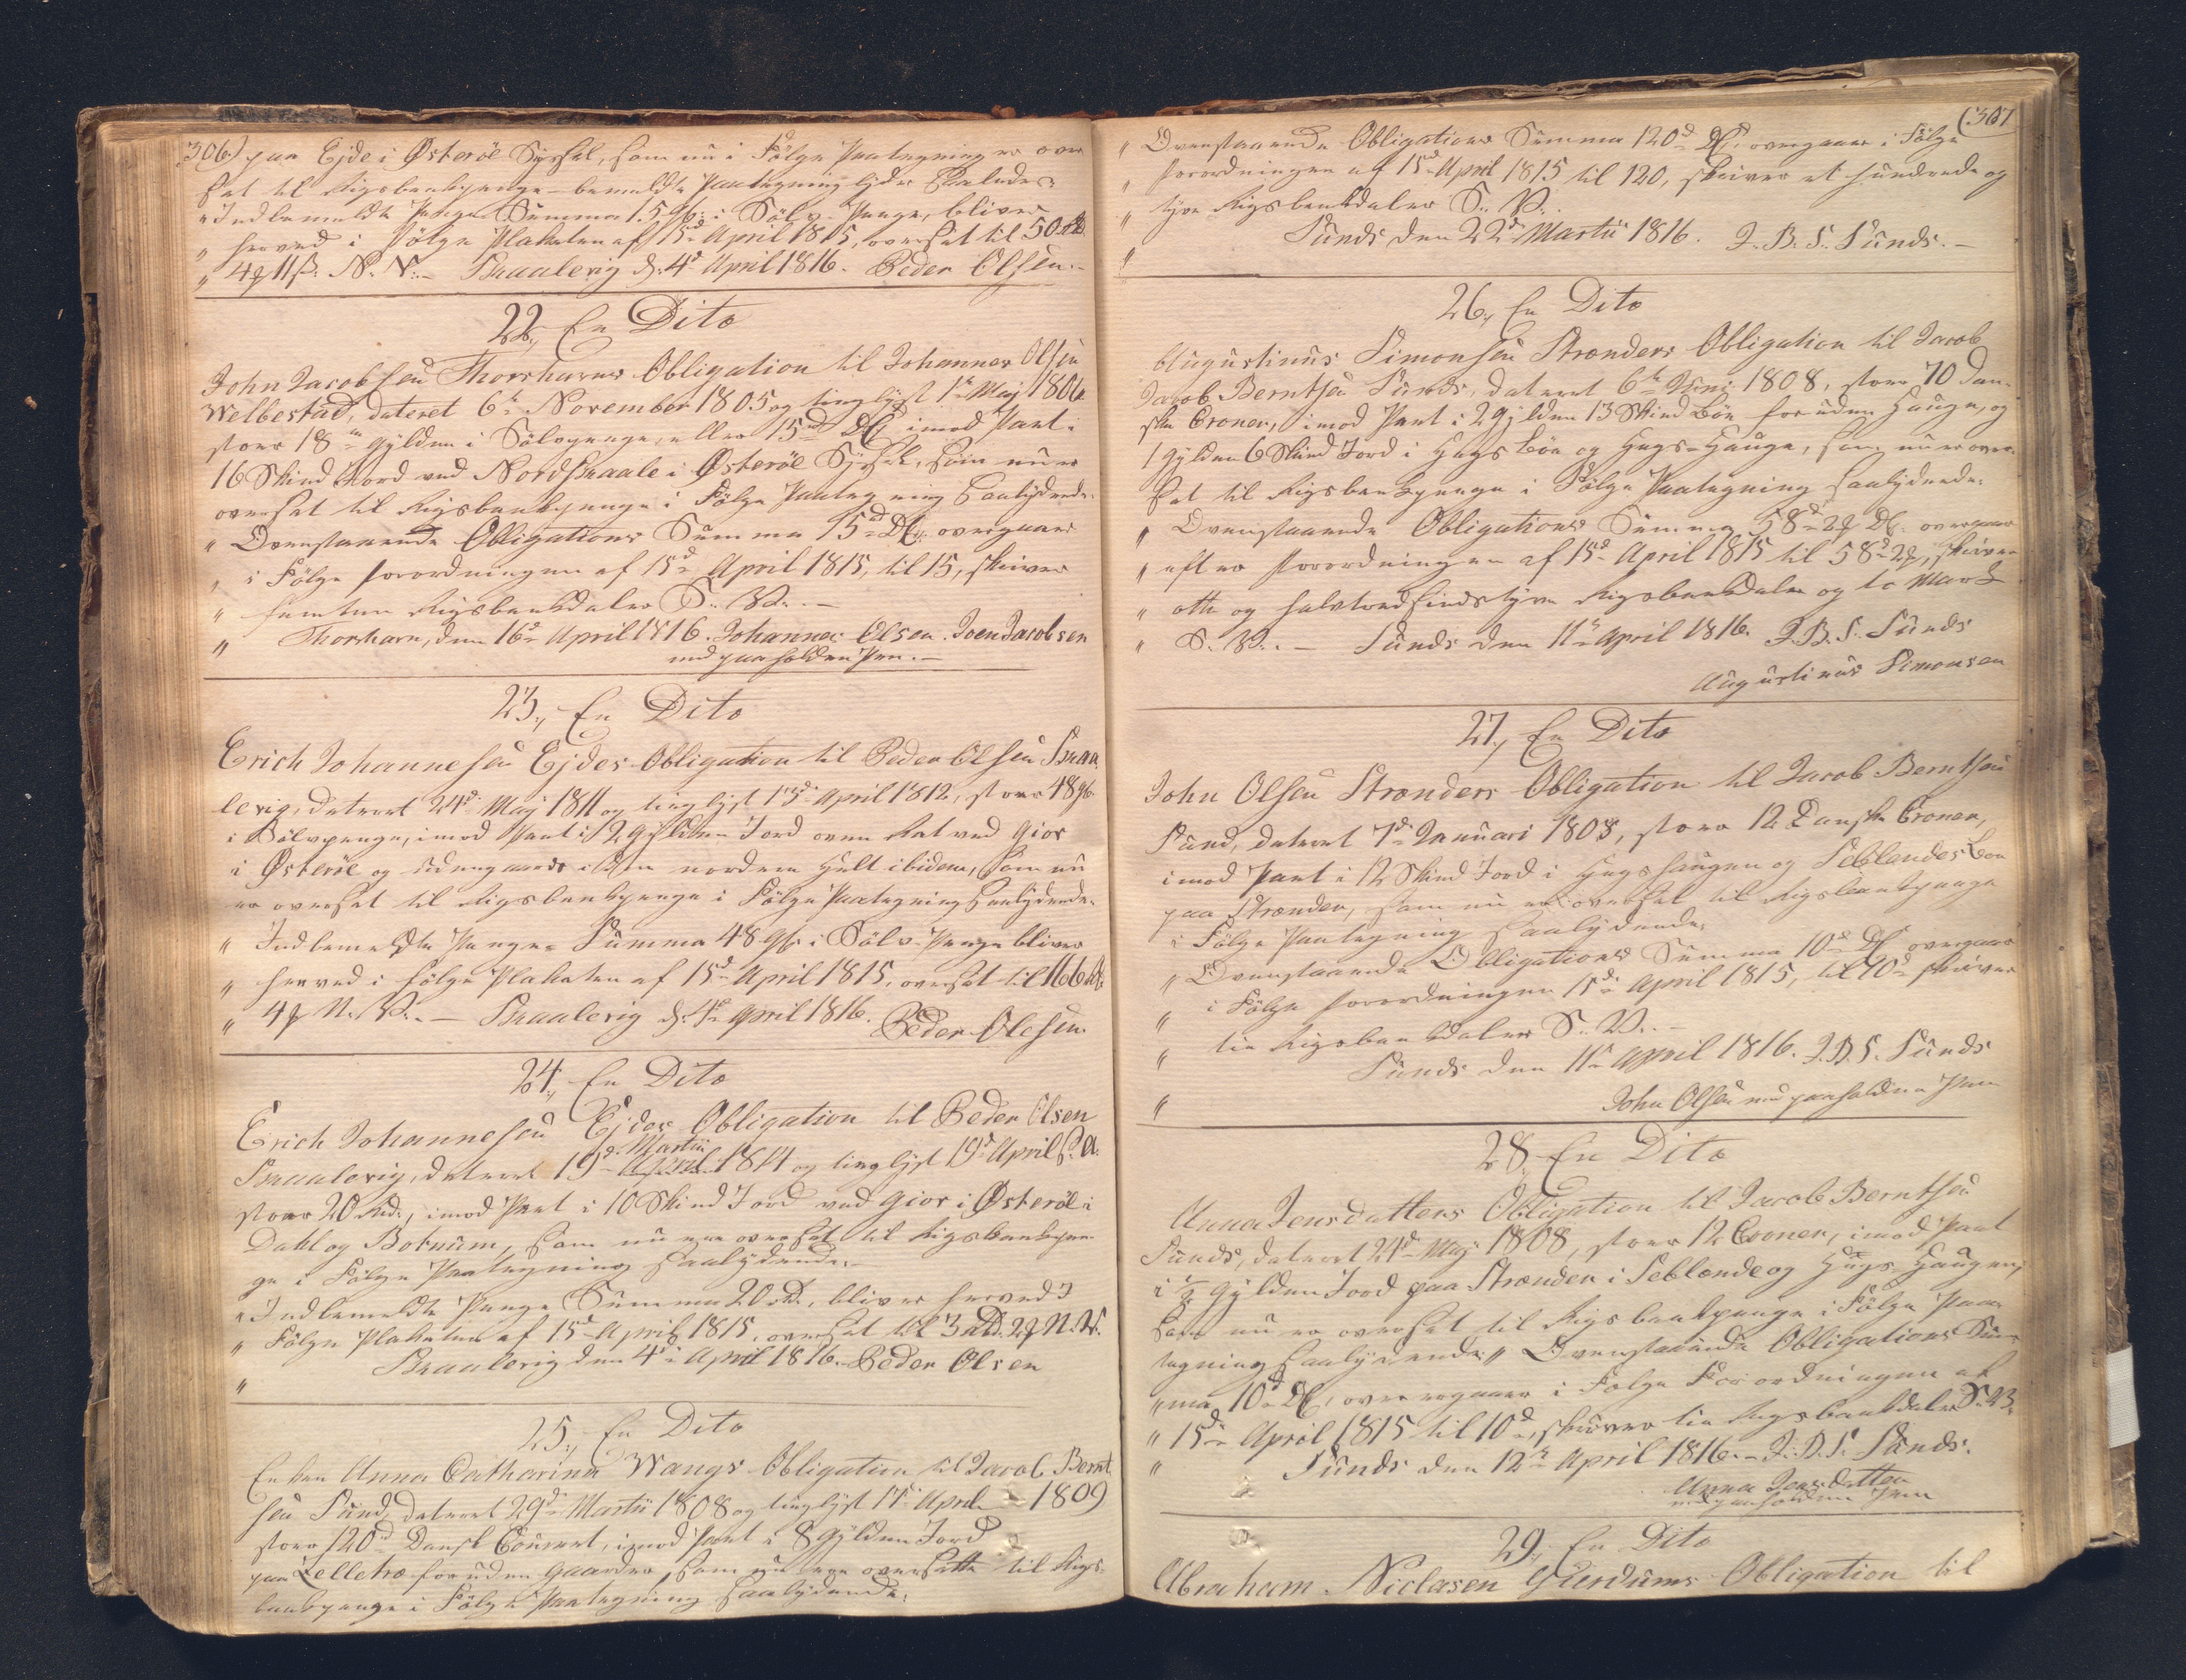 306) paa Ejde i Østerøe Syssel, som nu i Følge Paategning er over
sat til Rigsbankpenge - bemeldte Paategning lyder saaledes:
" Indbemeldte Penge Summa 15 i Sølv-Penge, bliver
" herved i Følge Plakaten af 15de April 1815, oversat til 50 Rd.
" 4 11 ß. N. V. – Snaalerig d. 4de April 1816. Peder Olsen. –
22, En Dito
John Jacobsen Thorshavns Obligation til Johannes Olsen
Welbestad, dateret 6te November 1805 og tinglyst 1te Maj 1806
stor 18 Gylden i Sølvpenge, eller 15 imod Pant i
16 Skind Jord ved Nordskaale i Østerøe Syssel, som nu er
oversat til Rigsbankpenge i Følge Paategning saalydende:
" Ovenstaaende Obligations Summa 15 overgaaer
" i Følge Forordningen af 15de April 1815, til 15, skriver
" femten Rigsbankdaler S. V. –
" Thorshavn, den 16de April 1816. Johannes Olsen. Joen Jacobsen
med paaholden Pen. –
23, En Dito
Erich Johannesen Ejdes Obligation til Peder Olsen Snaa
lerig, dateret 24de Maj 1811 og tinglyst 15de April 1812, stor 48
i Sølvpenge, imod Pant i 2 Gylden Jord ved Giov
i Østerøe og i den nordere Helt ibidem, som nu
er oversat til Rigsbankpenge i Følge Paategning saalydende:
" Indbemeldte Penge Summa 48 i Sølv-Penge bliver
" herved i Følge Plakaten af 15de April 1815, oversat til 166 Rd.
" 4 N. V. – Snaalerig d. 4de April 1816. Peder Olesen.
24, En Dito
Erich Johannesen Ejdes Obligation til Peder Olsen
Martii
Snaalerig, dateret 19de April 1814 og tinglyst 19de April s. A.
stor 20 Rd., imod Pant i 10 Skind Jord ved Giov i Østerøe i
Dahl og Botnum, som nu er oversat til Rigsbankpen
ge i Følge Paategning saalydende. –
" Indbemeldte Penge Summa 20 Rd., bliver herved I
" Følge Plakaten af 15de April 1815, oversat til 3 Rd. 2 N. V.
" Snaalerig den 4de April 1816. Peder Olsen
25, En Dito
Enken Anna Catharina Wangs Obligation til Jacob Bernt
sen Sund, dateret 29de Martii 1808 og tinglyst April 1809
stor 120 Dansk Courant, imod Pant i 8 Gylden Jord
paa Selletræ foruden Gaarden, som nu er oversatte til Rigs
bankpenge i Følge Paategning saalydende:
(307
" Ovenstaaende Obligations Summa 120 overgaaer i Følge
" Forordningen af 15de April 1815 til 120, skriver et hundrede og
" tyve Rigsbankdaler S. V.
" Sunds den 22de Martii 1816. J. B. S. Sunds. –
26, En Dito
Augustinus Simonsen Strænders Obligation til Jacob
Jacob Berntsen Sunds, dateret 6te Juni 1808, stor 70 dan-
ske Croner, imod Pant i 2 Gylden 13 Skind Bøe foruden Hauge, og
1 Gylden 6 Skind Jord i Hugs Bøe og Hugs-Hauge, som nu er over
sat til Rigsbankpenge i Følge Paategning saalydende:
" Ovenstaaende Obligations Summa 58 2 overgaaer
" efter Forordningen af 15de April 1815 til 58 2, skriver
" otte og halvtredsindstyve Rigsbankdaler og to Mark
" S. V. – Sunds den 11te April 1816. J. B. S. Sunds
Augustinus Simonsen
27, En Dito
John Olsen Strænders Obligation til Jacob Berntsen
Sund, dateret 7de Januari 1808, stor 12 Danske Croner,
imod Pant i 12 Skind Jord i Hugshaugen og Seblendes Bøe
paa Strænder, som nu er oversat til Rigsbankpenge
i Følge Paategning saalydende:
" Ovenstaaende Obligations Summa 10 overgaaer
" i Følge Forordningen 15de April 1815, til 10 skriver
" tie Rigsbankdaler S. V. –
Sunds den 11te April 1816. J. B. S. Sunds
" John Olsen med paaholden Pen
28, En Dito
Anna Jensdatters Obligation til Jacob Berntsen
Sunds, dateret 24de Maj 1808, stor 12 Croner, imod Pant
i ½ Gylden Jord paa Strænder i Seblende og Hugs-Haugen,
som nu er oversat til Rigsbankpenge i Følge Paa-
tegning saalydende: " Ovenstaaende Obligations Sum-
" ma 10 overgaaer i Følge Forordningen af
" 15de April 1815 til 10, skriver tie Rigsbankdaler S. V.
" Sunds den 12te April 1816. – J. B. S. Sunds.
Anna Jensdatter
med paaholden Pen
29, En Dito
Abraham Niclasen Gierdums Obligation til